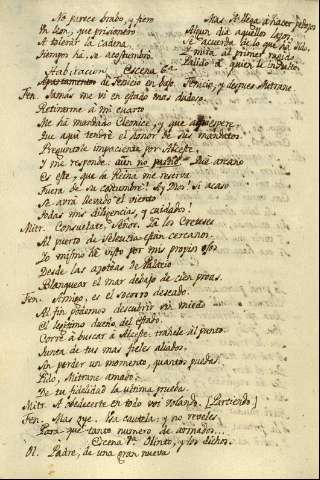 No parece brabo, y fiero
Un leon, que prisionero
A tolerar la cadena
Tiempo há se acostumbró.
Mas si llega á hacer pedazos
Algun dia aquellos lazos,
Se acuerda de lo que há sido,
Y mira al primer rugido
Palido á quien le insultó.
Escena 6ª
Habitacion de Fenicio en bajo. Fenicio, y despues Mitrane
Fen. Jamas me vi en estado mas dudoso.
Retirarme á mi cuarto
Me há mandado Cleonice, y que aqui espere.
Que aqui tendré el honor de sus mandatos.
Preguntole impaciente por Alceste,
Y me responde: aun no partió. Que arcano
Es este, que la Reina me reserva
Fuera de su costumbre! Ay Dios! Si acaso
Se avrá llevado el viento
Todas mis diligencias, y cuidados!
Mitr. Consuelate, Señor. Ya los Cretenses
Al puerto de Seleucia están cercanos.
Yo mismo hé visto por mis propios ojos
Desde las azoteas de Palacio
Blanquear el mar debajo de cien proas.
Fen. Amigo, es el socorro deseado.
Al fin podemos descubrir sin miedo
Al legitimo dueño del estado.
Corre á buscar á Alceste: trahele al punto.
Junta de tus mas fieles aliados,
Sin perder un momento, quantos puedas.
Pido, Mitrane amado,
De tu fidelidad la ultima prueba.
Mitr. A obedecerte en todo voi volando. [Partiendo]
Fen. Mas oye, lleva cautela: y no reveles
Para que tanto numero de armados...
Escena 7ª Olinto, y los dichos.
Ol. Padre, de una gran nueva